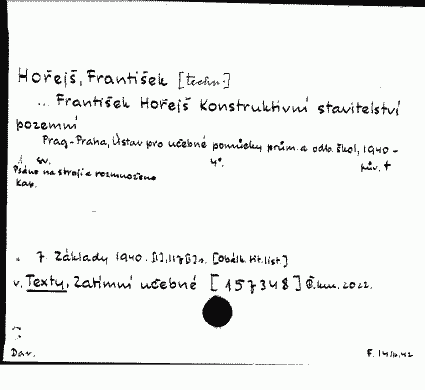 Hořejš, František [techn.]
... František Hořejš Konstruktivní stavitelství
pozemní
Prag-Praha, Ústav pro učebné pomůcky prům. a odb. škol, 1940 -
sv. 4°. pův. +
Psáno na stroji a rozmnoženo
Kap.
7. Základy 1940. [1], 117 [1] s. [Obálk. tit. list]
v. Texty, Zatímní učebné [157348] 2022.
Dav.
F. 14/10.42